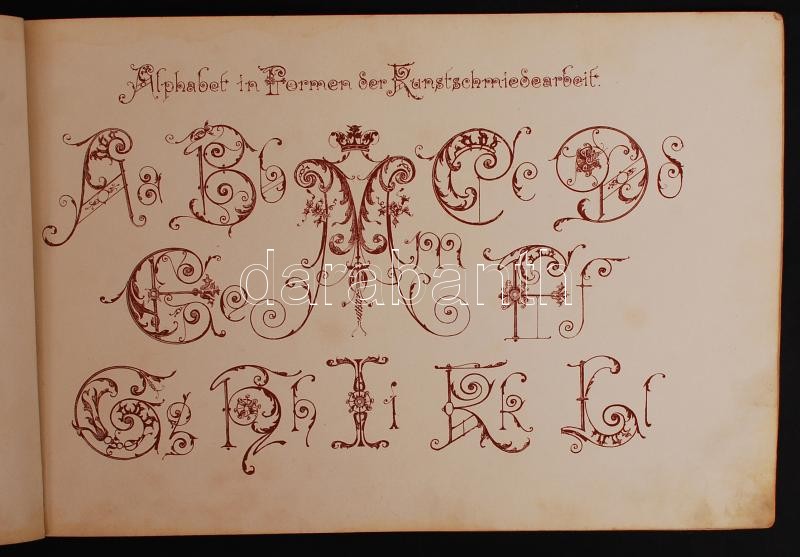 Alphabet in Formen der Kunstschmiedearbeit.
A a B b M m C c D d
E e F f
G g H h I i K k L l
darabanth